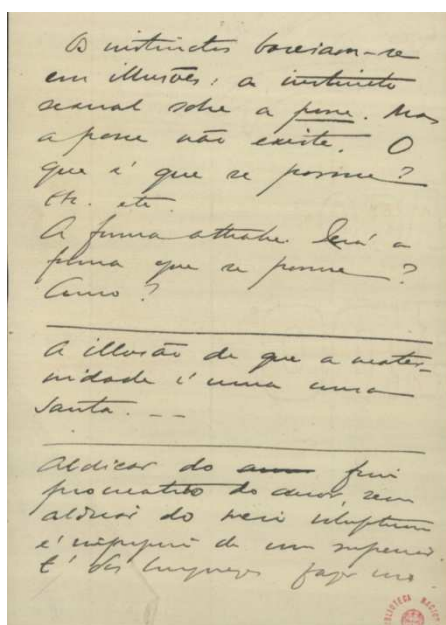 Os instinctos baseiam-se
em illusões: o instincto
sexual sobre a posse. Mas
a posse não existe. O
que é que se possue?
Etc. etc.
A forma attrahe. Será a
forma que se possue?
Como?
A illusão de que a mater-
nidade é uma cousa
santa. - -
Abdicar do fim
procreativo do amor, sem
abdicar do meio
é de um superior.
E' das fazer uso.
BIBLIOTECA NACIO